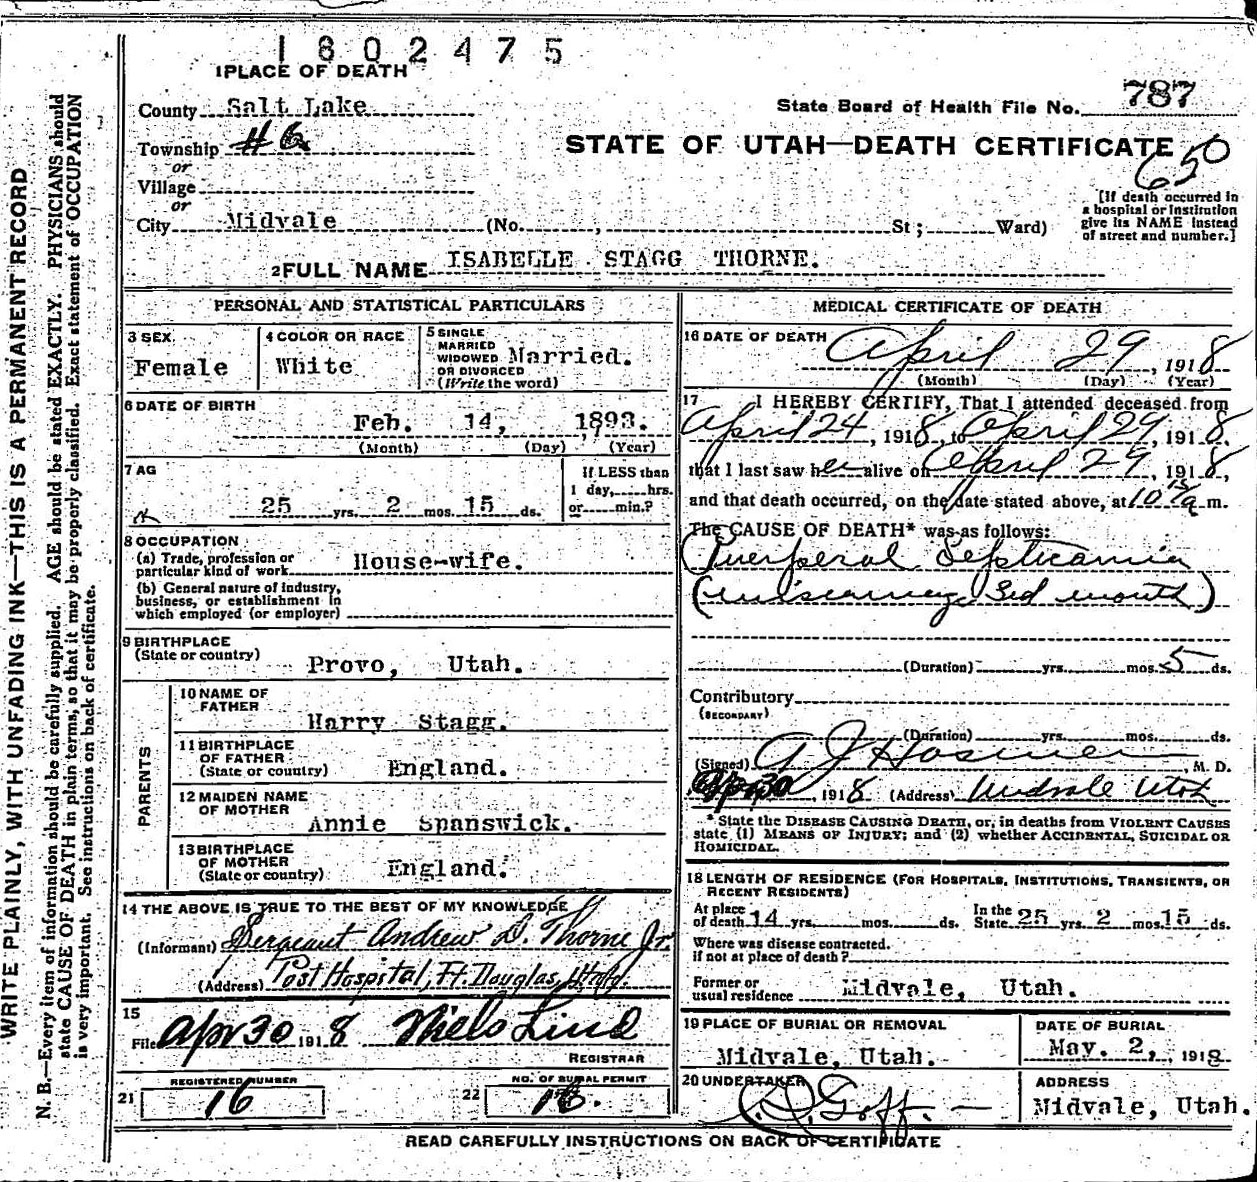 1802475
1 PLACE OF DEATH
County Salt Lake
State Board of Health File No. 787
Township #6
STATE OF UTAH—DEATH CERTIFICATE
650
or
Village
or
City Midvale (No. , St ; Ward)
[If death occurred in
a hospital or institution
give its NAME instead
of street and number.]
2 FULL NAME ISABELLE STAGG THORNE.
PERSONAL AND STATISTICAL PARTICULARS
3 SEX
Female
4 COLOR OR RACE
White
5 SINGLE
MARRIED
WIDOWED
OR DIVORCED
(Write the word)
Married.
6 DATE OF BIRTH
Feb. 14, 1893.
(Month) (Day) (Year)
7 AG
25 yrs. 2 mos. 15 ds.
If LESS than
1 day, hrs.
or min.?
8 OCCUPATION
(a) Trade, profession or
particular kind of work House-wife.
(b) General nature of industry,
business, or establishment in
which employed (or employer)
9 BIRTHPLACE
(State or country) Provo, Utah.
PARENTS
10 NAME OF
FATHER
Harry Stagg.
11 BIRTHPLACE
OF FATHER
(State or country) England.
12 MAIDEN NAME
OF MOTHER
Annie Spanswick.
13 BIRTHPLACE
OF MOTHER
(State or country) England.
14 THE ABOVE IS TRUE TO THE BEST OF MY KNOWLEDGE
(Informant) Sergeant Andrew D. Thorne Jr.
(Address) Post Hospital, Ft. Douglas, Utah.
15
File Apr 30 1918 Niels Lind
REGISTRAR
21 REGISTERED NUMBER
16
22 NO. OF BURIAL PERMIT
16.
MEDICAL CERTIFICATE OF DEATH
16 DATE OF DEATH
April 29, 1918
(Month) (Day) (Year)
17 I HEREBY CERTIFY, That I attended deceased from
April 24, 1918, to April 29, 1918,
that I last saw her alive on April 29, 1918,
and that death occurred, on the date stated above, at 10 15 a m.
The CAUSE OF DEATH* was as follows:
Puerperal Septicamia
(miscarriage 3rd month)
(Duration) yrs. mos. 5 ds.
Contributory
(SECONDARY)
(Duration) yrs. mos. ds.
(Signed) A J Hosmer M. D.
Apr 30 1918 (Address) Midvale Utah
* State the DISEASE CAUSING DEATH, or, in deaths from VIOLENT CAUSES
state (1) MEANS OF INJURY; and (2) whether ACCIDENTAL, SUICIDAL OR
HOMICIDAL.
18 LENGTH OF RESIDENCE (FOR HOSPITALS, INSTITUTIONS, TRANSIENTS, OR
RECENT RESIDENTS)
At place
of death 14 yrs. mos. ds.
In the
State 25 yrs. 2 mos. 15 ds.
Where was disease contracted.
if not at place of death?
Former or
usual residence Midvale, Utah.
19 PLACE OF BURIAL OR REMOVAL
Midvale, Utah.
DATE OF BURIAL
May. 2, 1918
20 UNDERTAKER
Goff.
ADDRESS
Midvale, Utah.
READ CAREFULLY INSTRUCTIONS ON BACK OF CERTIFICATE
WRITE PLAINLY, WITH UNFADING INK—THIS IS A PERMANENT RECORD
N. B.—Every item of information should be carefully supplied. AGE should be stated EXACTLY. PHYSICIANS should
state CAUSE OF DEATH in plain terms, so that it may be properly classified. Exact statement of OCCUPATION
is very important. See instructions on back of certificate.